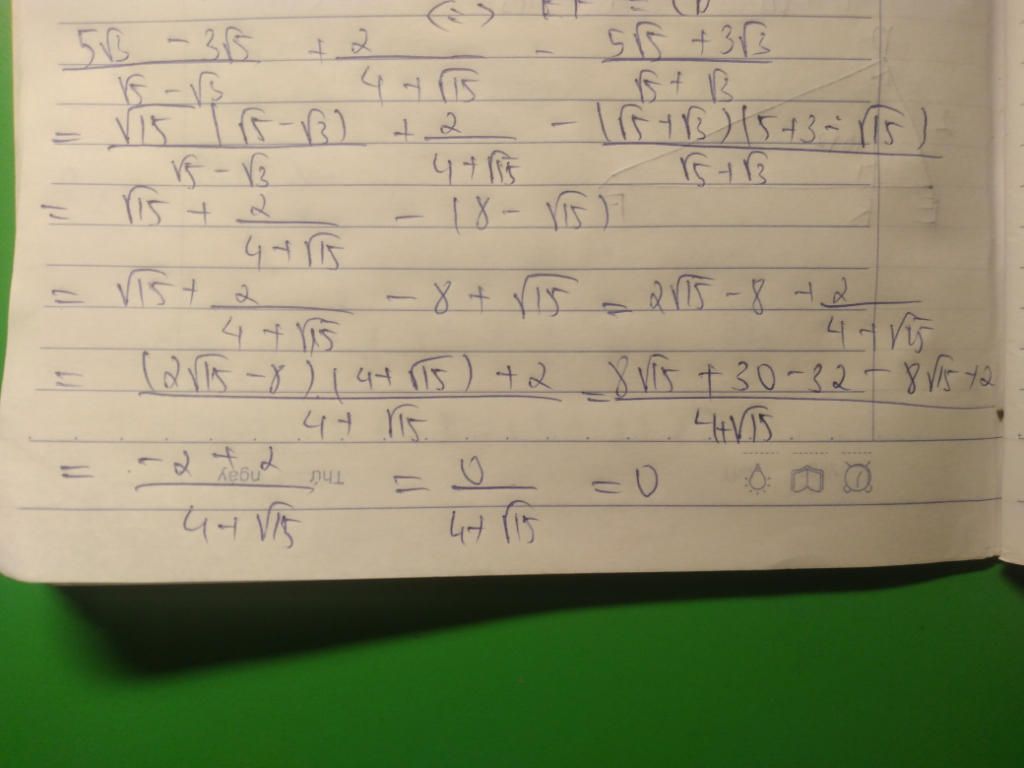 (5√3 - 3√5)/(√5 - √3) + 2/(4 + √15) - (5√5 + 3√3)/(√5 + √3)
= √15 (√5 - √3)/(√5 - √3) + 2/(4 + √15) - (√5 + √3)(5 + 3 - √15)/(√5 + √3)
= √15 + 2/(4 + √15) - (8 - √15)
= √15 + 2/(4 + √15) - 8 + √15 = 2√15 - 8 + 2/(4 + √15)
= ((2√15 - 8)(4 + √15) + 2)/(4 + √15) = (8√15 + 30 - 32 - 8√15 + 2)/(4 + √15)
= (-2 + 2)/(4 + √15) = 0/(4 + √15) = 0
Thứ
ngày